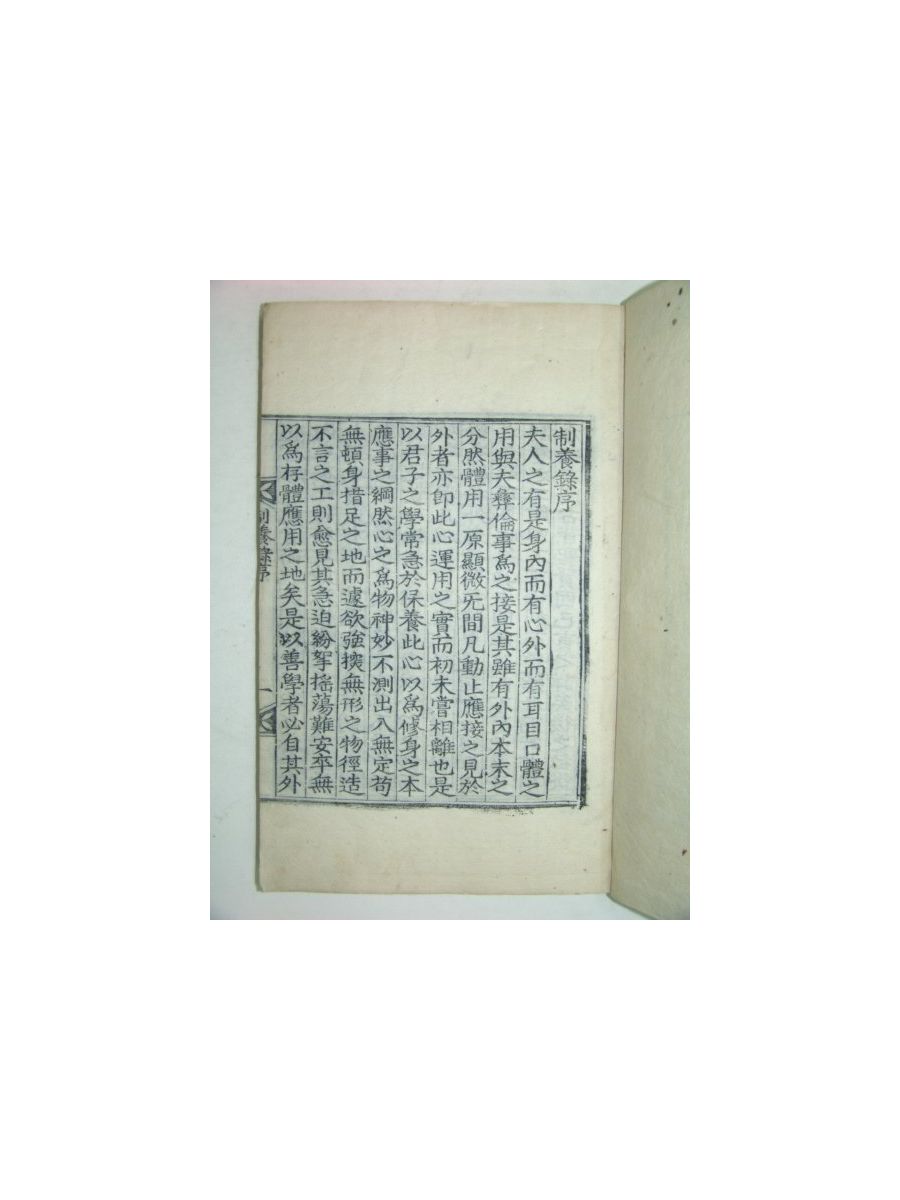 制養錄序
夫人之有是身內而有心外而有耳目口體之
用與夫彛倫事爲之接是其雖有外內本末之
分然體用一原顯微无間凡動止應接之見於
外者亦卽此心運用之實而初未嘗相離也是
以君子之學常急於保養此心以爲修身之本
應事之綱然心之爲物神妙不測出入無定苟
無頓身措足之地而遽欲強揬無形之物徑造
不言之工則愈見其急迫紛挐搖蕩難安卒無
以爲存體應用之地矣是以善學者必自其外
制養錄序
一